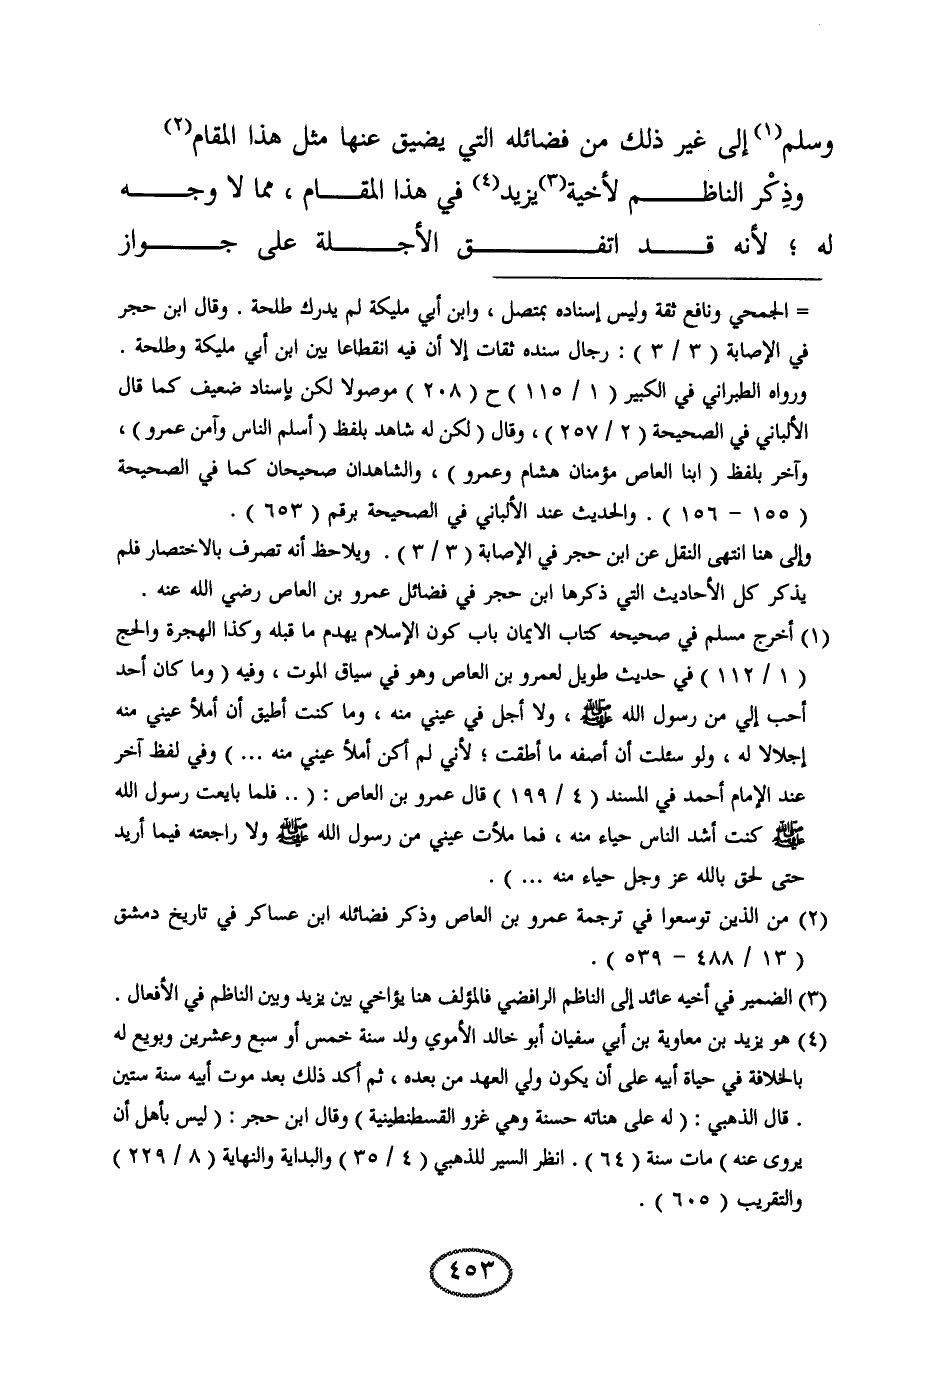 وسلم(١) إلى غير ذلك من فضائله التي يضيق عنها مثل هذا المقام(٢)
وذِكْر الناظم لأخية(٣) يزيد(٤) في هذا المقام ، مما لا وجه
له ؛ لأنه قد اتفق الأجلة على جواز
= الجمحي ونافع ثقة وليس إسناده بمتصل ، وابن أبي مليكة لم يدرك طلحة . وقال ابن حجر
في الإصابة ( ٣ / ٣ ) : رجال سنده ثقات إلا أن فيه انقطاعا بين ابن أبي مليكة وطلحة .
ورواه الطبراني في الكبير ( ١ / ١١٥ ) ح ( ٢٠٨ ) موصولا لكن بإسناد ضعيف كما قال
الألباني في الصحيحة ( ٢ / ٢٥٧ ) ، وقال ( لكن له شاهد بلفظ ( أسلم الناس وآمن عمرو ) ،
وآخر بلفظ ( ابنا العاص مؤمنان هشام وعمرو ) ، والشاهدان صحيحان كما في الصحيحة
( ١٥٥ - ١٥٦ ) . والحديث عند الألباني في الصحيحة برقم ( ٦٥٣ ) .
وإلى هنا انتهى النقل عن ابن حجر في الإصابة ( ٣ / ٣ ) . ويلاحظ أنه تصرف بالاختصار فلم
يذكر كل الأحاديث التي ذكرها ابن حجر في فضائل عمرو بن العاص رضي الله عنه .
(١) أخرج مسلم في صحيحه كتاب الايمان باب كون الإسلام يهدم ما قبله وكذا الهجرة والحج
( ١ / ١١٢ ) في حديث طويل لعمرو بن العاص وهو في سياق الموت ، وفيه ( وما كان أحد
أحب إلي من رسول الله ﷺ ، ولا أجل في عيني منه ، وما كنت أطيق أن أملأ عيني منه
إجلالا له ، ولو سئلت أن أصفه ما أطقت ؛ لأني لم أكن أملأ عيني منه ... ) وفي لفظ آخر
عند الإمام أحمد في المسند ( ٤ / ١٩٩ ) قال عمرو بن العاص : ( .. فلما بايعت رسول الله
ﷺ كنت أشد الناس حياء منه ، فما ملأت عيني من رسول الله ﷺ ولا راجعته فيما أريد
حتى لحق بالله عز وجل حياء منه ... ) .
(٢) من الذين توسعوا في ترجمة عمرو بن العاص وذكر فضائله ابن عساكر في تاريخ دمشق
( ١٣ / ٤٨٨ - ٥٣٩ ) .
(٣) الضمير في أخيه عائد إلى الناظم الرافضي فالمؤلف هنا يؤاخي بين يزيد وبين الناظم في الأفعال .
(٤) هو يزيد بن معاوية بن أبي سفيان أبو خالد الأموي ولد سنة خمس أو سبع وعشرين وبويع له
بالخلافة في حياة أبيه على أن يكون ولي العهد من بعده ، ثم أكد ذلك بعد موت أبيه سنة ستين
. قال الذهبي : ( له على هناته حسنة وهي غزو القسطنطينية ) وقال ابن حجر : ( ليس بأهل أن
يروى عنه ) مات سنة ( ٦٤ ) . انظر السير للذهبي ( ٤ / ٣٥ ) والبداية والنهاية ( ٨ / ٢٢٩ )
والتقريب ( ٦٠٥ ) .
٤٥٣